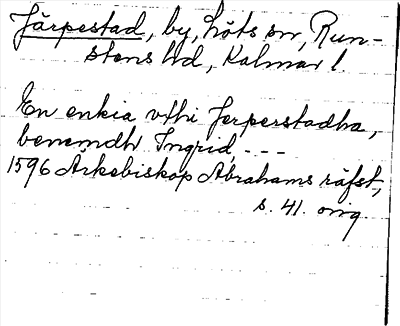 Järpestad, by, Löts sn, Run-
stens hd, Kalmar l.
En enkia vthi Jerperstadha,
benemdh Ingrid, ---
1596 Ärkebiskop Abrahams räfst,
s. 41. orig.